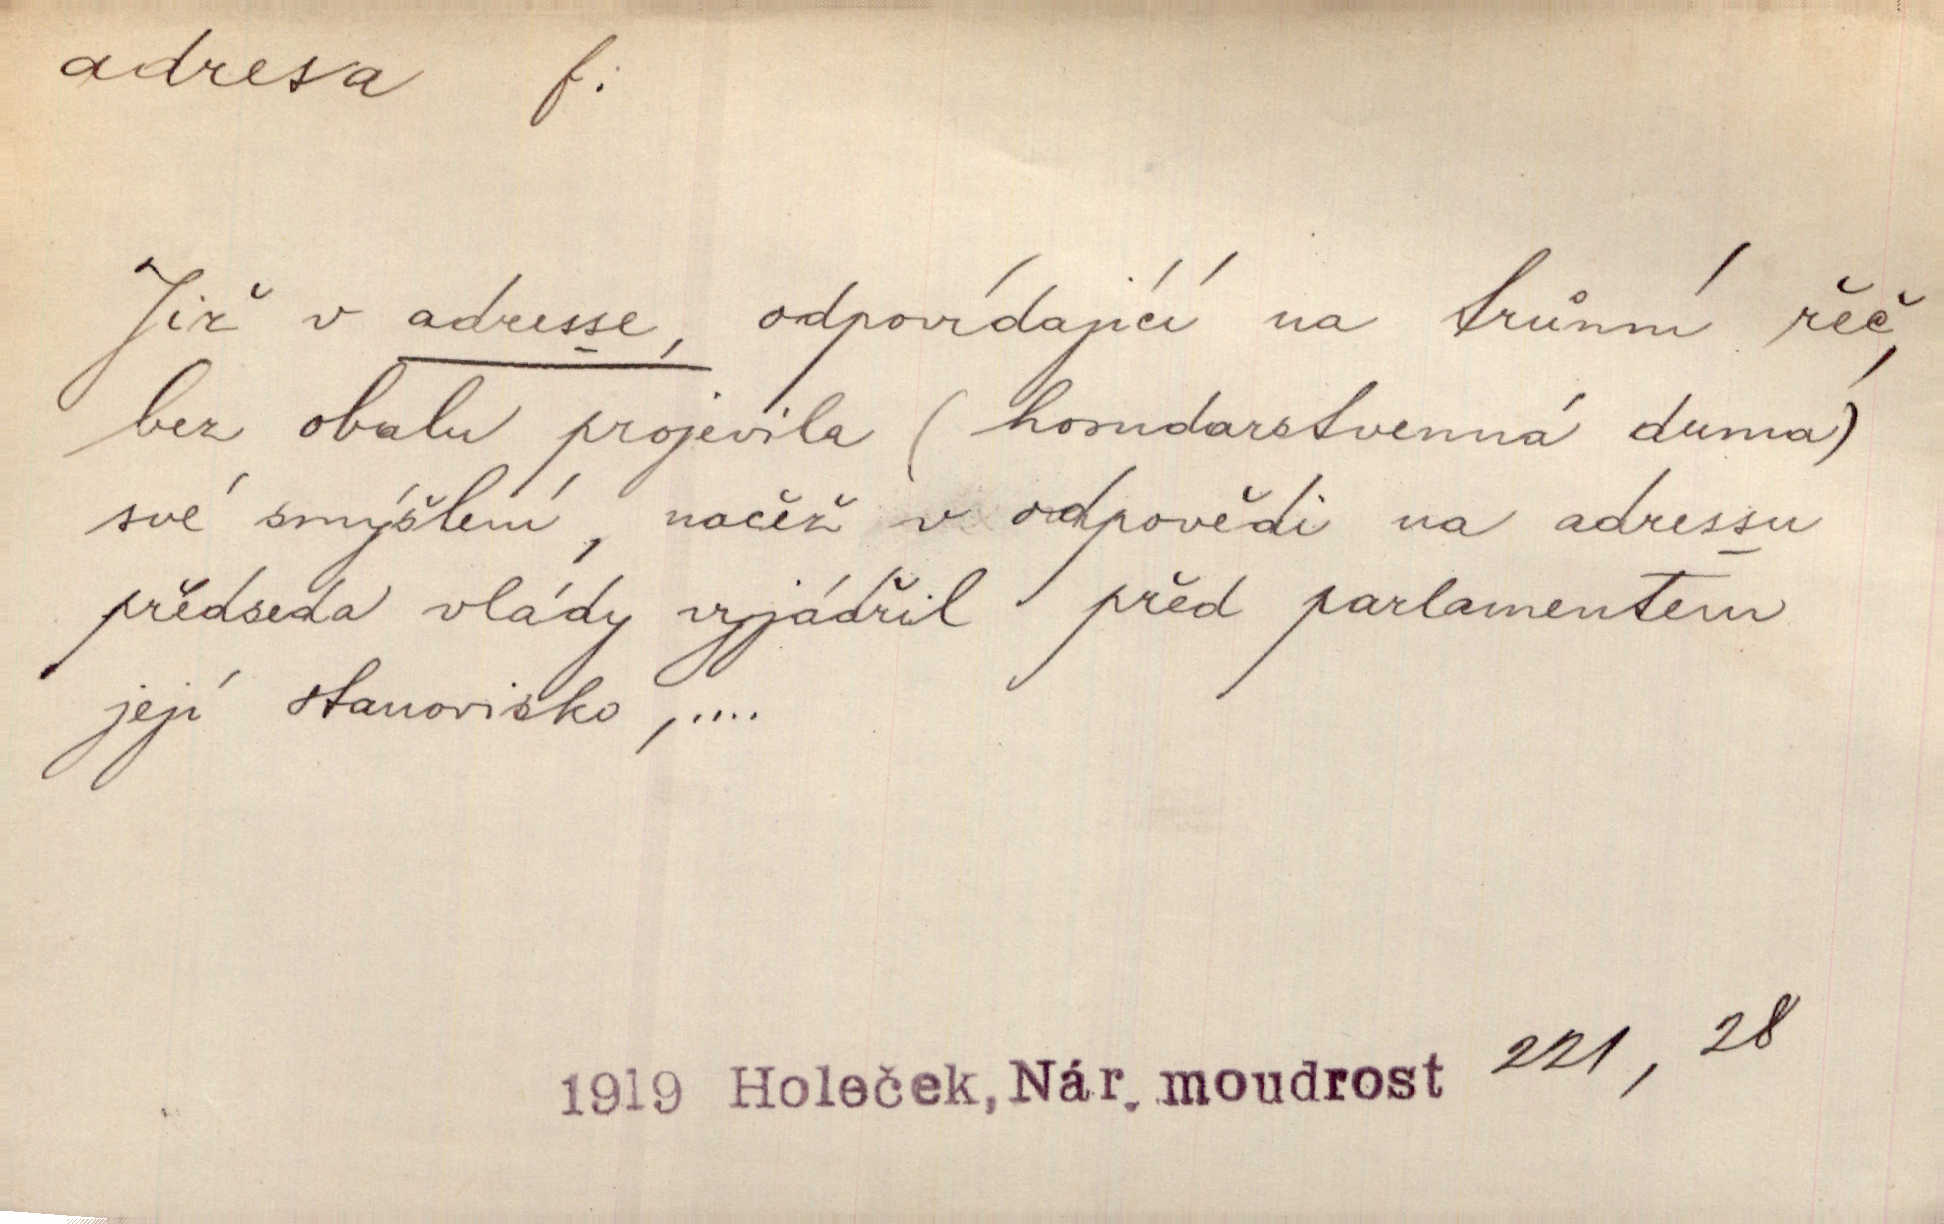 adresa f.
Již v adresse, odpovídající na trůnní řeč,
bez obalu projevila (hosudarstvenná duma)
své smýšlení, načež v odpovědi na adressu
předseda vlády vyjádřil před parlamentem
její stanovisko,....
1919 Holeček, Nár. moudrost 221, 28